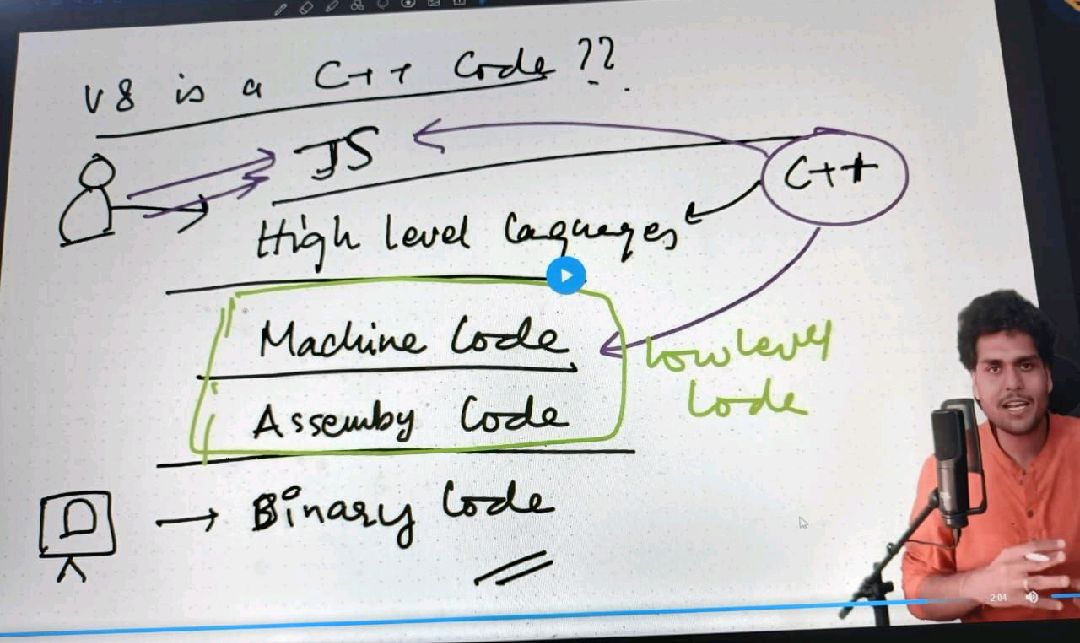 V8 is a C++ Code ??
JS
C++
High level Laguages
Machine Code
Low level
Code
Assemby Code
Binary Code
2:04